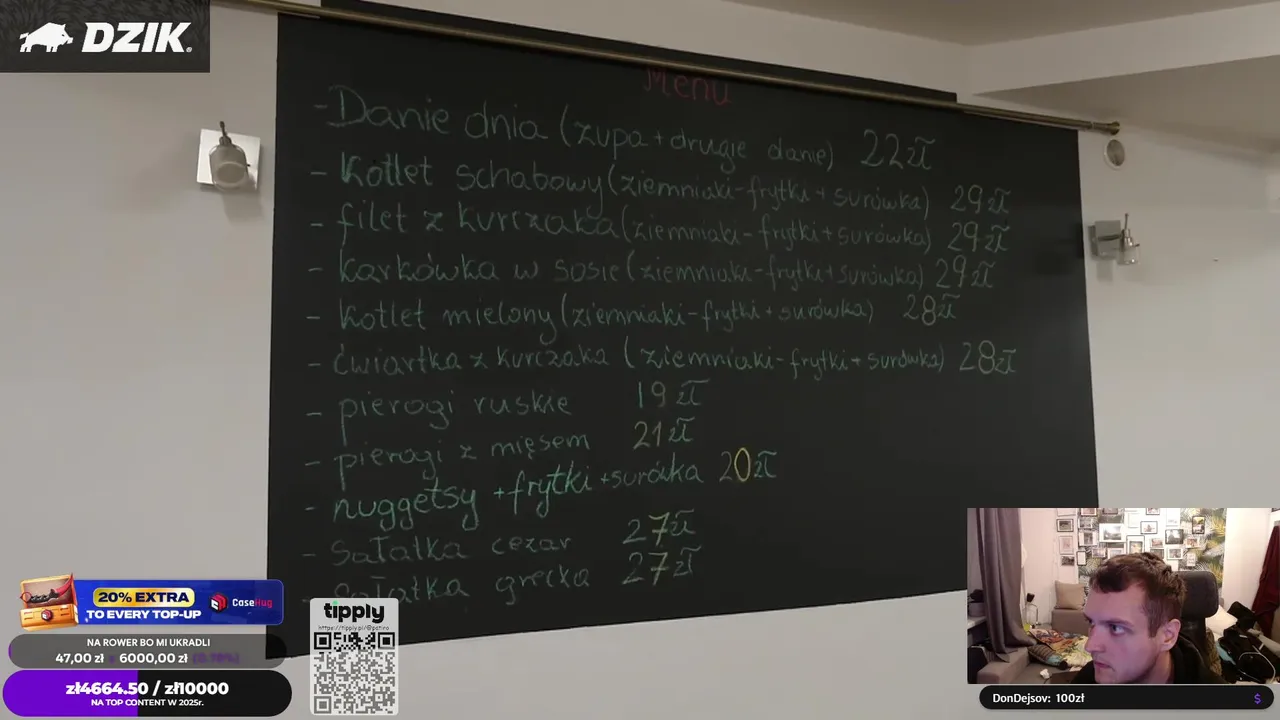 DZIK
Menu
- Danie dnia (zupa + drugie danie) 22 zł
- kotlet schabowy (ziemniaki - frytki + surówka) 29 zł
- filet z kurczaka (ziemniaki - frytki + surówka) 29 zł
- karkówka w sosie (ziemniaki - frytki + surówka) 29 zł
- kotlet mielony (ziemniaki - frytki + surówka) 28 zł
- ćwiartka z kurczaka (ziemniaki - frytki + surówka) 28 zł
- pierogi ruskie 19 zł
- pierogi z mięsem 21 zł
- nuggetsy + frytki + surówka 20 zł
- Sałatka cezar 27 zł
- Sałatka grecka 27 zł
20% EXTRA
TO EVERY TOP-UP
CaseHug
NA ROWER BO MI UKRADLI
47,00 zł 6000,00 zł (0.78%)
zł4664.50 / zł10000
NA TOP CONTENT W 2025r.
tipply
DonDejsov: 100zł
$